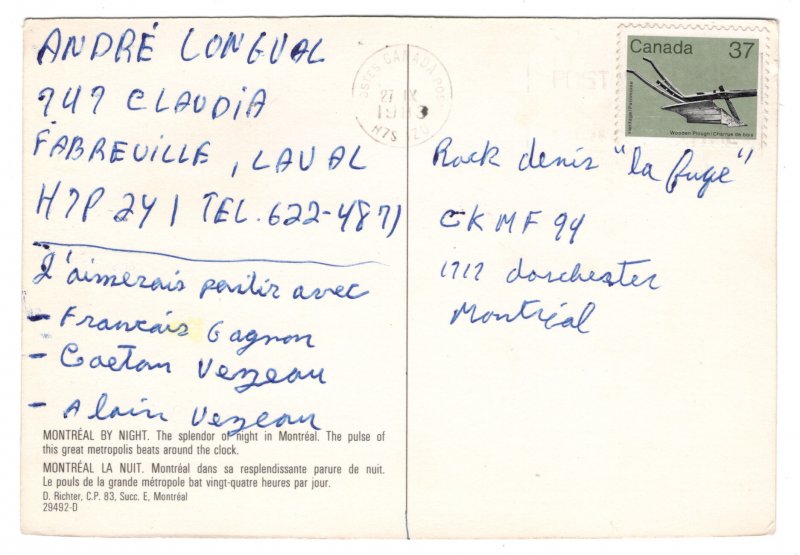 ANDRÉ LONGVAL
747 CLAUDIA
FABREVILLE, LAVAL
H7P 2Y1 TEL. 622-4871
J'aimerais partir avec
- Francais Gagnon
- Gaetan Vezeau
- Alain Vezeau
MONTRÉAL BY NIGHT. The splendor of night in Montréal. The pulse of
this great metropolis beats around the clock.
MONTRÉAL LA NUIT. Montréal dans sa resplendissante parure de nuit.
Le pouls de la grande métropole bat vingt-quatre heures par jour.
D. Richter, C.P. 83, Succ. E, Montréal
29492-D
POSTES CANADA POST
27 IX
1983
H7S 1Z0
POST
Canada 37
Heritage/Patrimoine
Wooden Plough/Charrue de bois
Rock denis "la fuge"
CKMF 94
1717 dorchester
Montréal